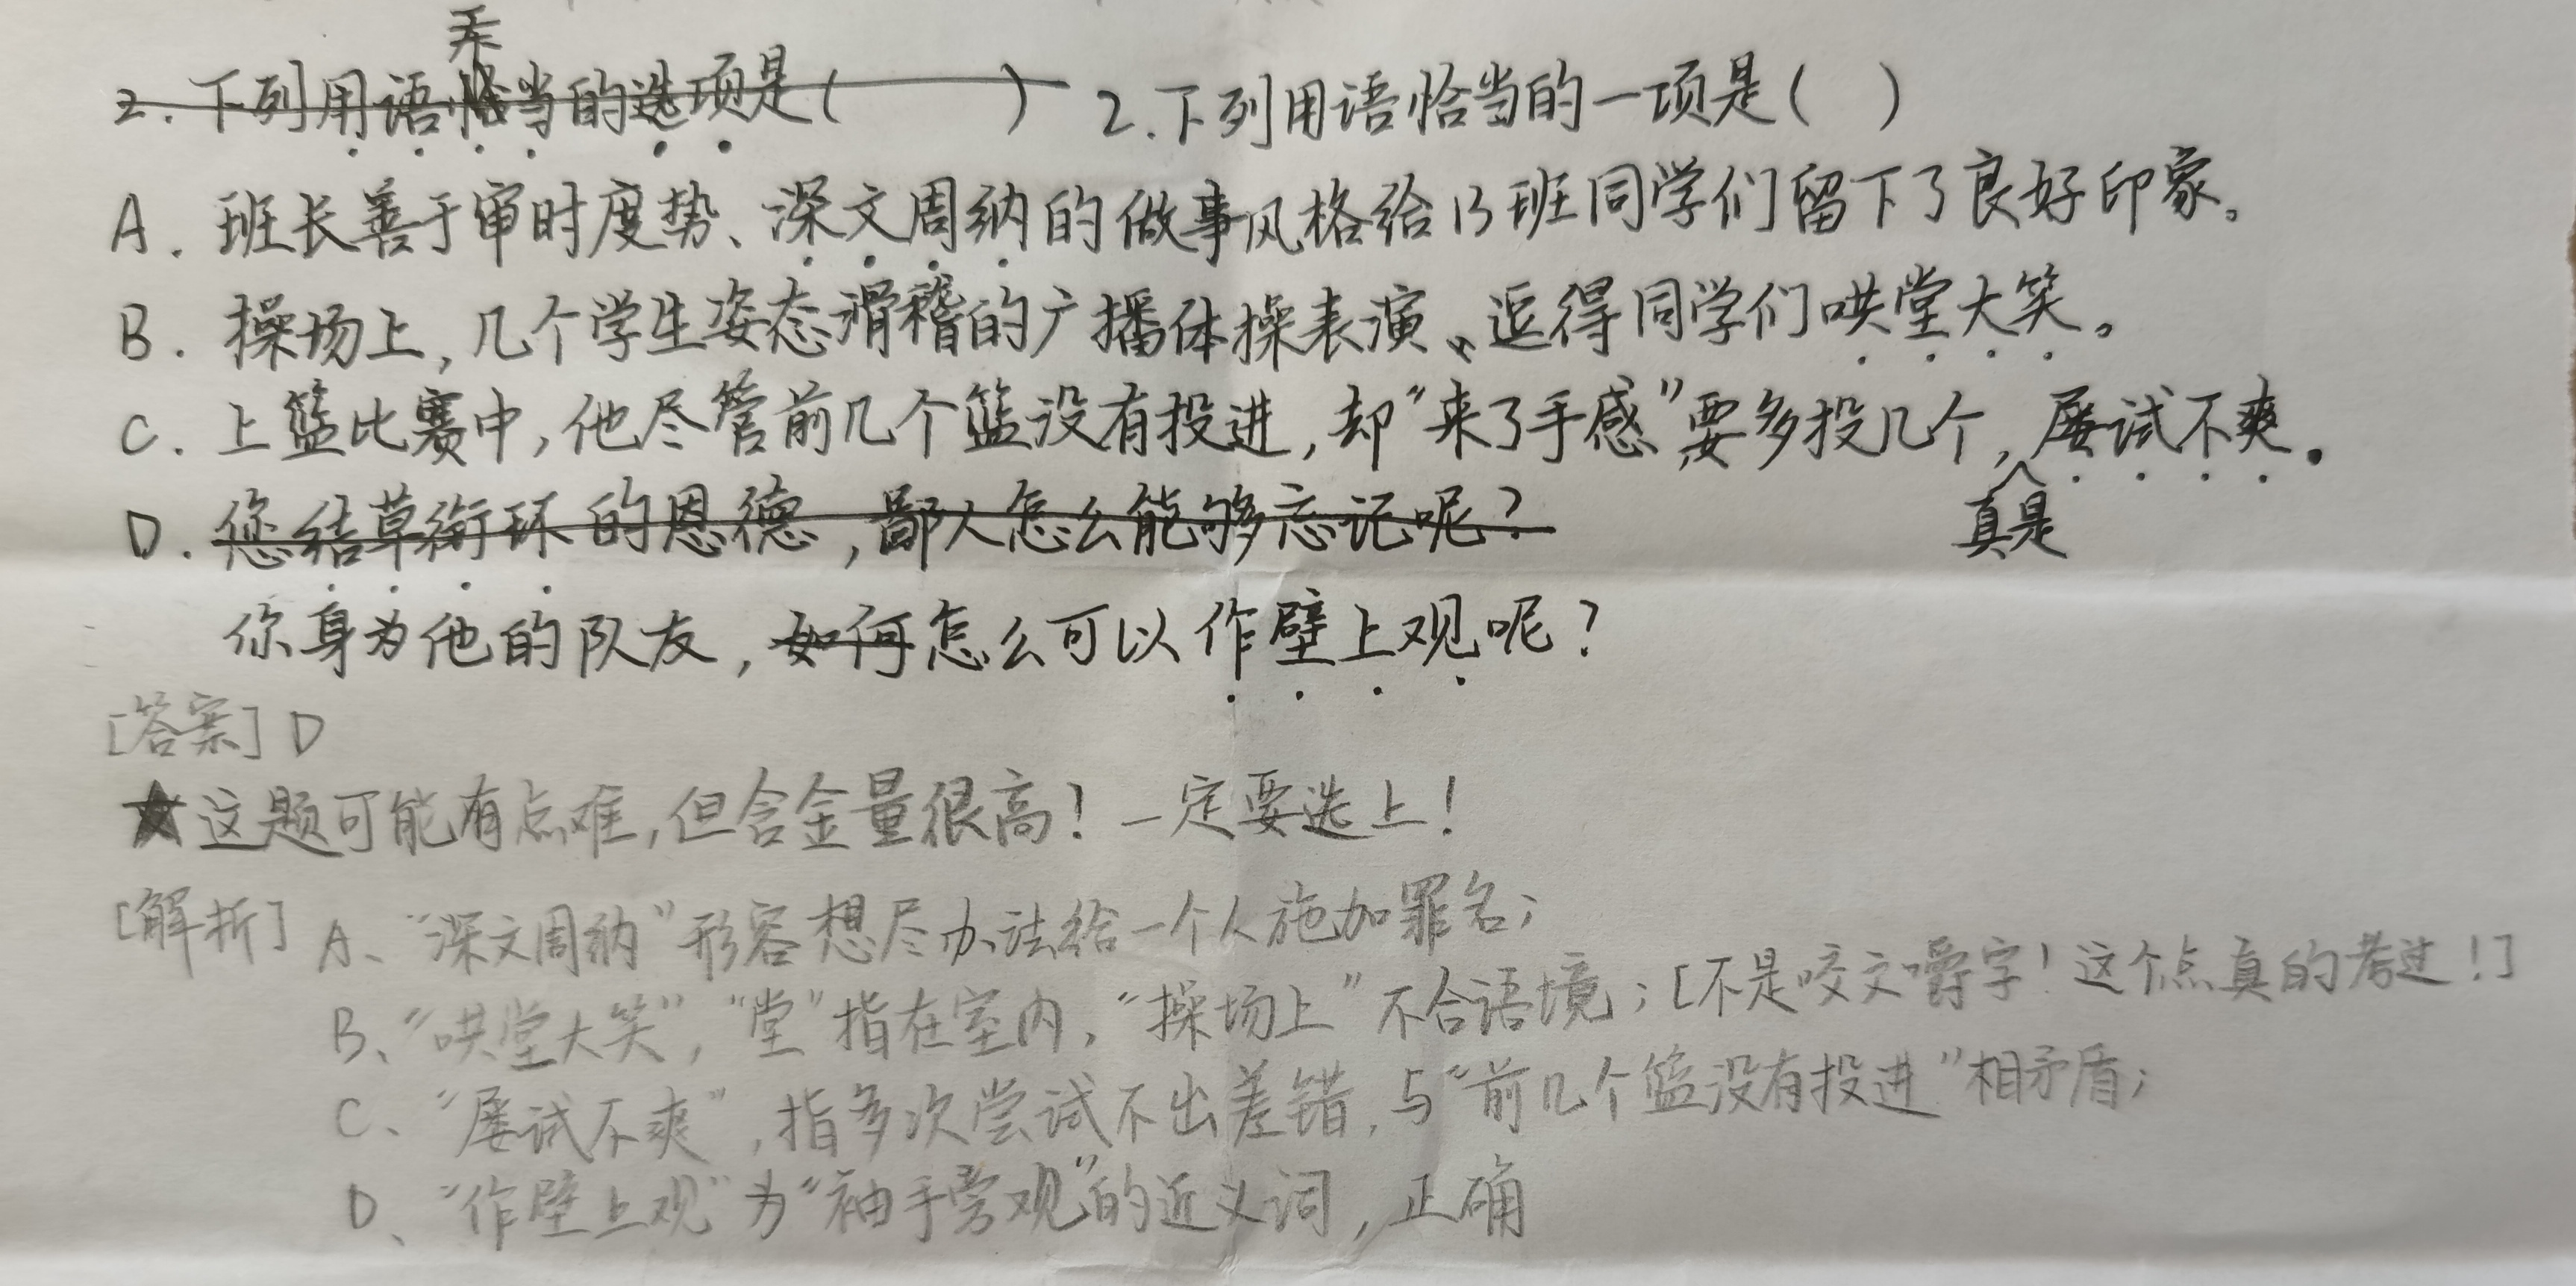 2.下列用语恰当的选项是( ) 2.下列用语恰当的一项是( )
A.班长善于审时度势、深文周纳的做事风格给13班同学们留下了良好印象。
B.操场上,几个学生姿态滑稽的广播体操表演、逗得同学们哄堂大笑。
C.上篮比赛中,他尽管前几个篮没有投进,却"来了手感"要多投几个,真是屡试不爽。
D.您结草衔环的恩德,鄙人怎么能够忘记呢?
你身为他的队友,如何怎么可以作壁上观呢?
[答案]D
★这题可能有点难,但含金量很高!一定要选上!
[解析]A、"深文周纳"形容想尽办法给一个人施加罪名;
B、"哄堂大笑","堂"指在室内,"操场上"不合语境;[不是咬文嚼字!这个点真的考过!]
C、"屡试不爽",指多次尝试不出差错,与"前几个篮没有投进"相矛盾;
D、"作壁上观"为"袖手旁观"的近义词,正确